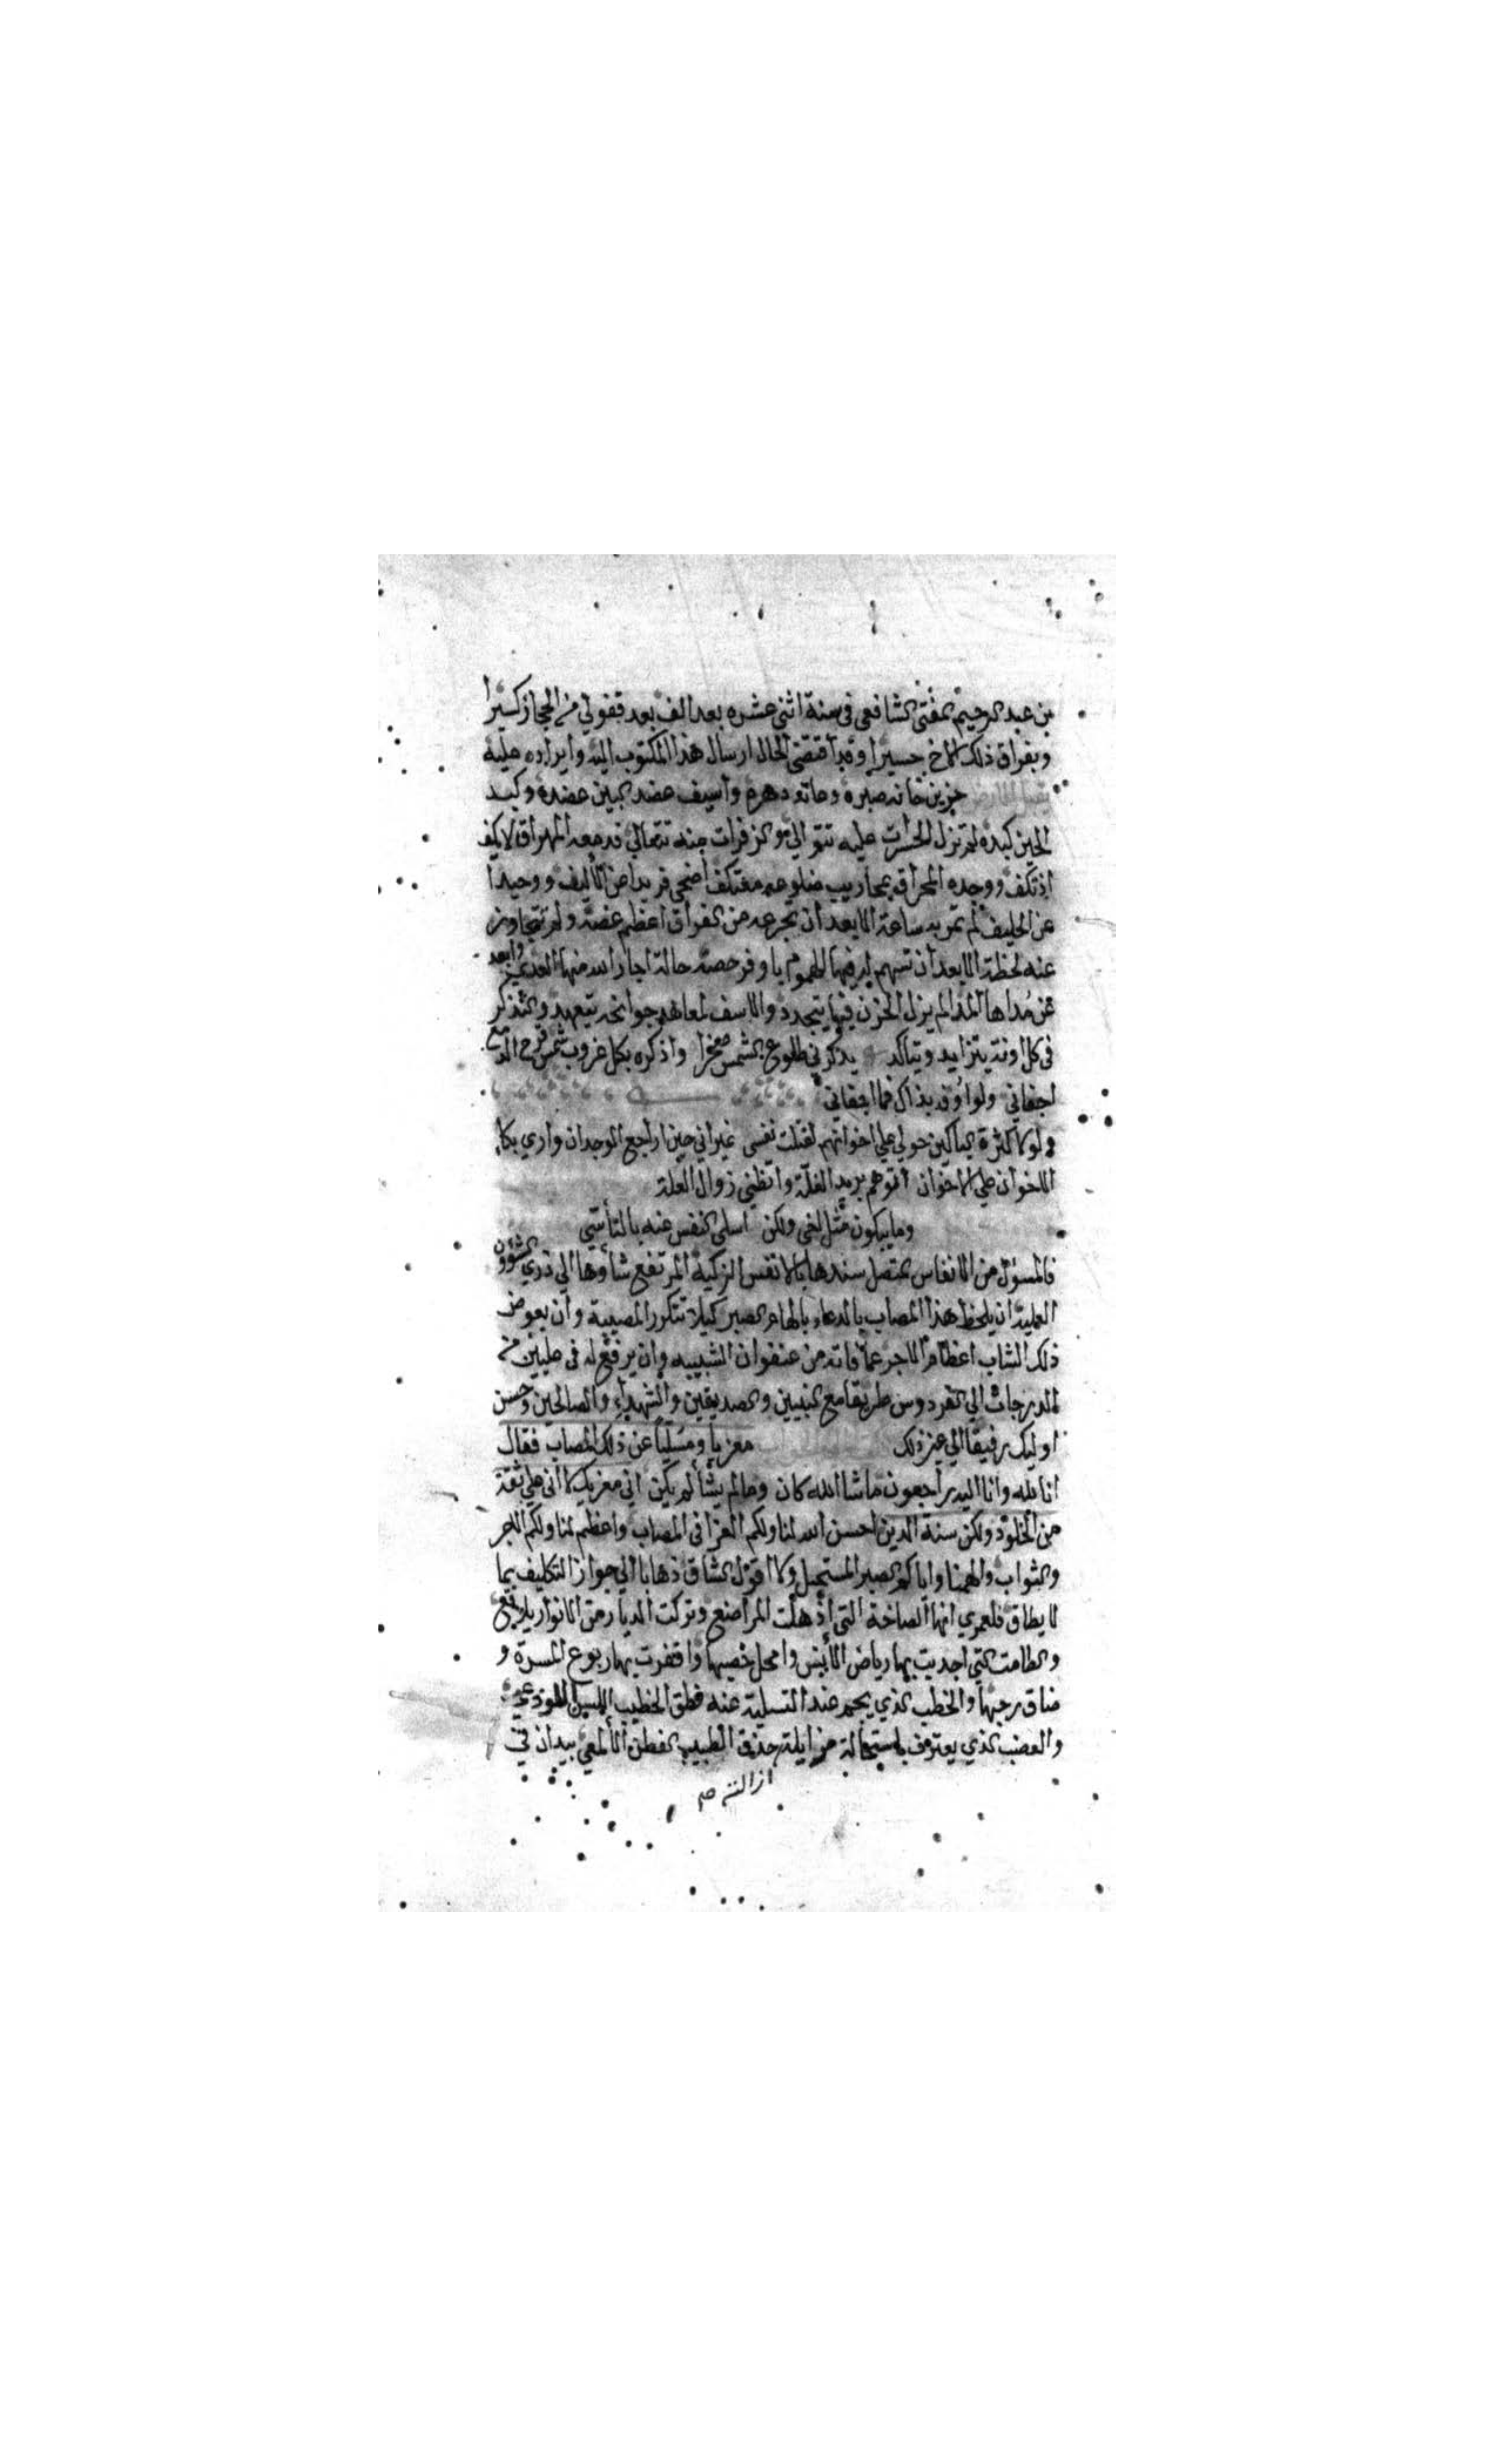 بن عبد الرحيم المفتى الشافعى فى سنة اثنى عشره بعد الف بعد قفولي من الحجاز كسيرا
وبفراق ذلك الاخ حسيرا وقد اقتضى الحال ارسال هذا المكتوب اليه وايراده عليه
يقبل الارض حزين خانه صبره وعانده دهره واسيف عضد البين عضده وكبد
الحين كبده لم تزل الحسرات عليه تتوالي والزفرات منه تتعالى فدمعه المهراق لا يكف
اذ تكف ووجده المحراق بمحاريب ضلوعه معتكف اضحى فريدا من الأليف ووحيدا
عن الحليف لم تمر به ساعة الا بعد ان تجرعه من الفراق اعظم غصة ولم تتجاوز
عنه لحظة الا بعد ان تسهم له فيها الهموم باوفر حصة حالة اجار الله منها العدى وابعد
عن مداها المدا لم يزل الحزن فيها يتجدد والاسف لمعاهد جوانحه يتعهد والتذكر
فى كل اونة يتزايد ويتاكد يذكرني طلوع الشمس صخرا واذكره بكل غروب شمس قرح الدمع
اجفاني ولو اوقد بذاك فما اجفاني
ولولا كثرة الباكين حولي علي اخوانهم لقتلت نفسى غير اني حين اراجع الوجدان واري بكاء
الاخوان علي الاخوان اتوهم بريد الغلة واتظني زوال العلة
وما يبكون مثل اخي ولكن اسلي النفس عنه بالتأسي
فالمسؤل من الانفاس المتصل سندها بالانفس الزكية المرتفع شأوها الي ذري الشؤون
العلية ان يلحظ هذا المصاب بالدعاء بالهام الصبر كيلا تتكرر المصيبة وان يعوض
ذلك الشاب اعظام الاجر عما فاته من عنفوان الشبيبه وان يرفع له فى عليين من
الدرجات الي الفردوس طريقا مع النبيين والصديقين والشهداء والصالحين وحسن
اوليك رفيقا الي غير ذلك معزيا ومسليا عن ذلك المصاب فقال
انا لله وانا اليه راجعون ما شا الله كان وما لم يشأ لم يكن اني معزيك لا اني على ثقة
من الخلود ولكن سنة الدين احسن الله لنا ولكم العزا فى المصاب واعظم لنا ولكم الاجر
والثواب والهمنا واياكم الصبر المستحيل ولا اقول الشاق ذهابا الي جواز التكليف بما
لا يطاق فلعمري انها الصاخة التي اذهلت المراضع وتركت الديار من الانوار بلاقع
والطامت التي اجدبت بها رياض الأنس وامحل خصبها واقفرت بها ربوع المسرة و
ضاق رحبها والخطب الذي يحجم عند التسلية عنه نطق الخطيب اللسن اللوذعي
والعضب الذي يعترف باستحالة مزايلته حذق الطبيب الفطن الألمعي بيد ان في
ازالته صح